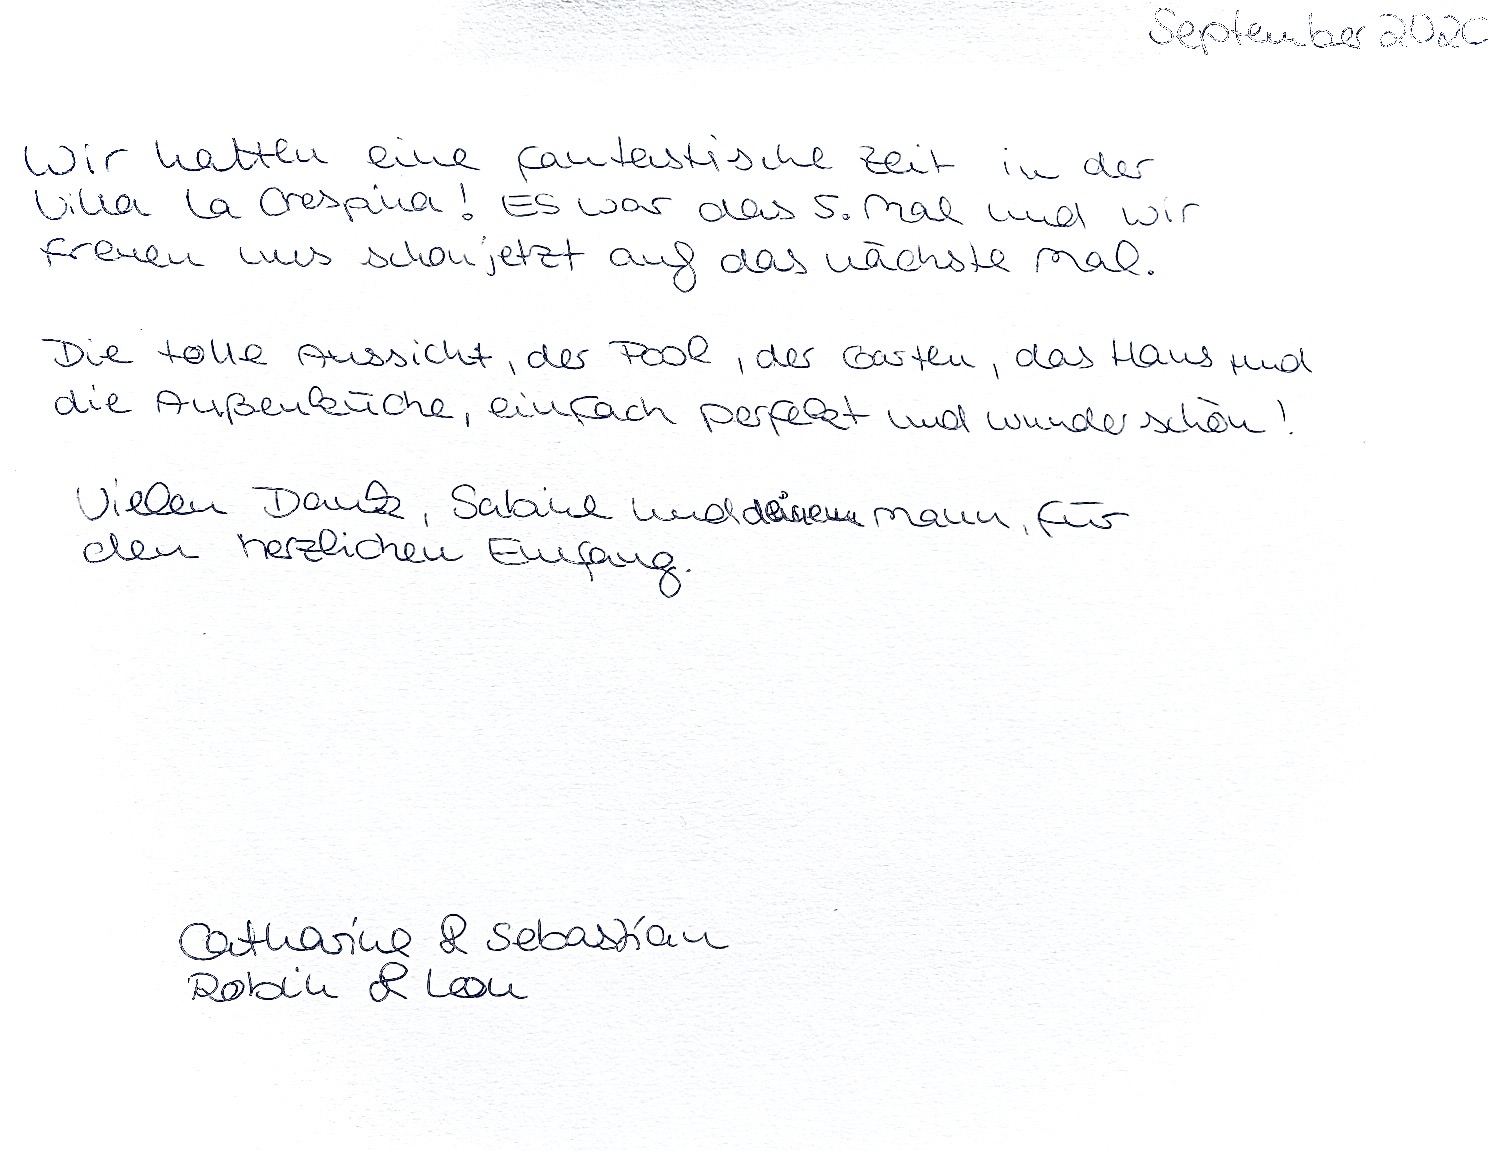 September 2020
Wir hatten eine fantastische Zeit in der
Villa la Crespina! Es war das 5. Mal und wir
freuen uns schon jetzt auf das nächste Mal.
Die tolle Aussicht, der Pool, der Garten, das Haus und
die Außenküche, einfach perfekt und wunderschön!
Vielen Dank, Sabine und deinem Mann, für
den herzlichen Empfang.
Catharine & Sebastian
Robin & Leon